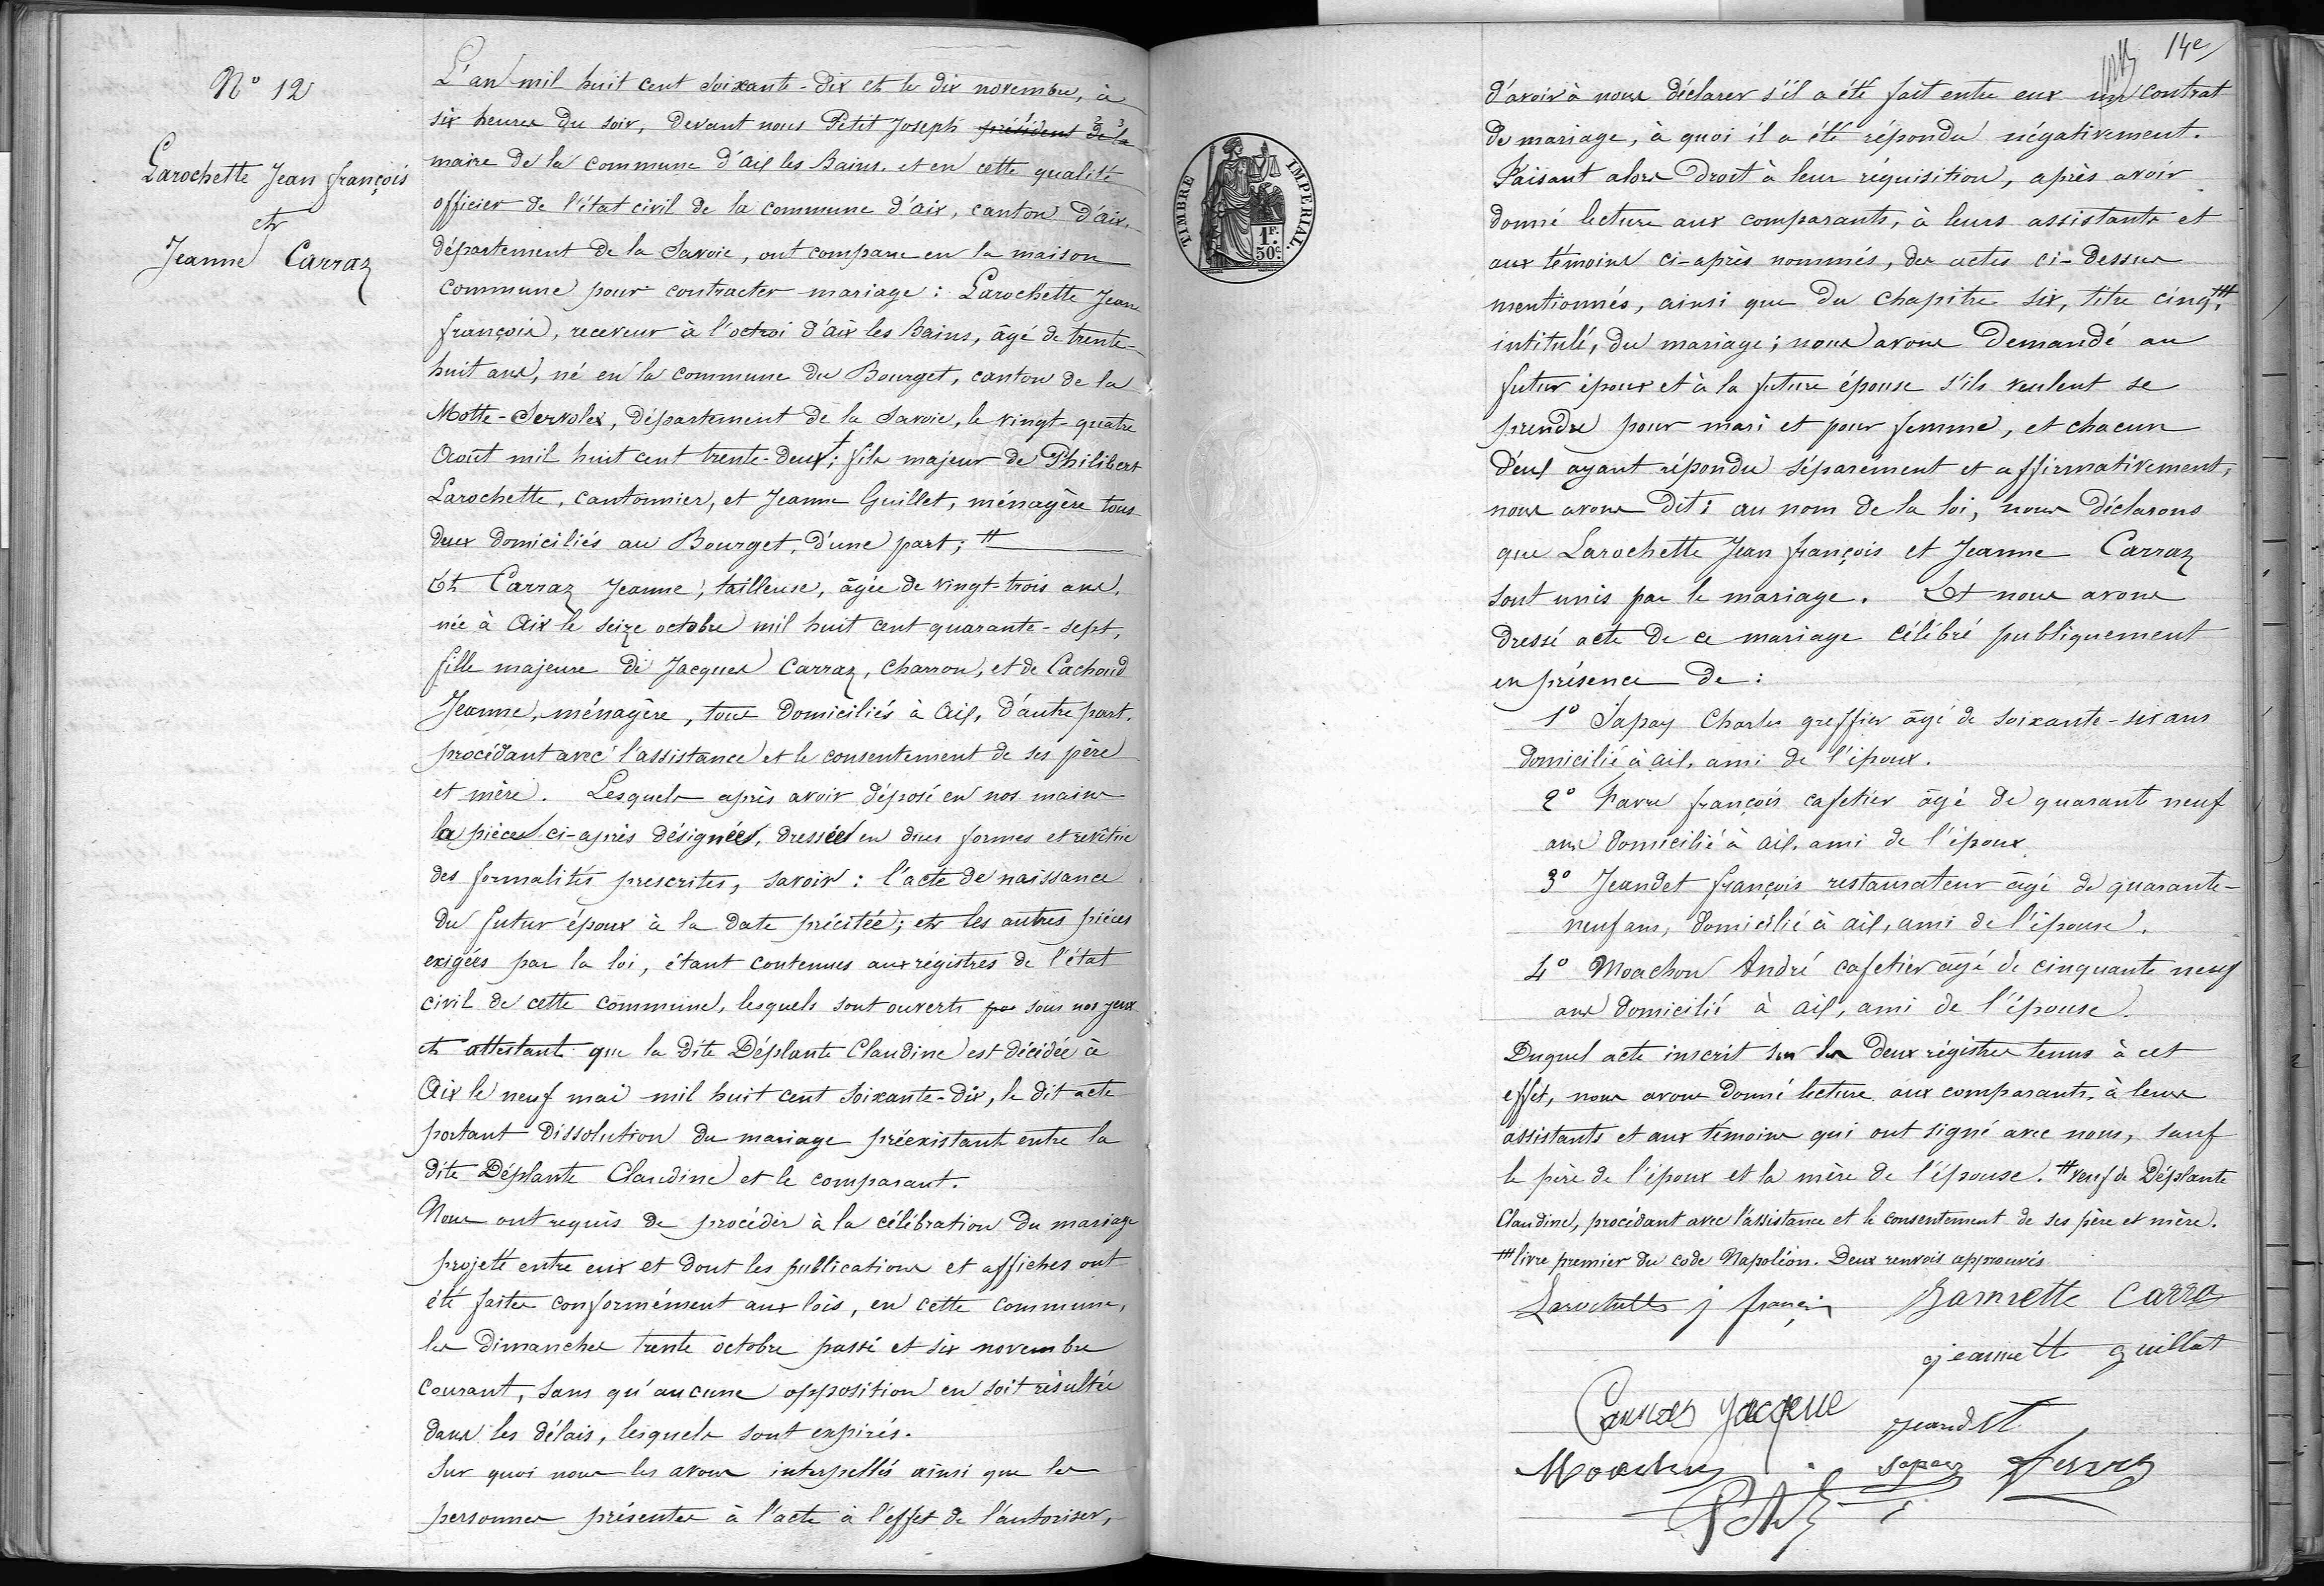 N° 12
Larochette Jean françois
et
Jeanne Carraz
L'an mil huit cent soixante-dix et le dix novembre, à
six heures du soir, devant nous Petit Joseph président de la
maire de la commune d'aix les Bains. et en cette qualité
officier de l'état civil de la commune d'aix, canton d'aix,
département de la Savoie, ont comparu en la maison
commune pour contracter mariage : Larochette Jean
françois, receveur à l'octroi d'aix les Bains, âgé de trente-
huit ans, né en la commune du Bourget, canton de la
Motte-Servolex, département de la Savoie, le vingt-quatre
Août mil huit cent trente-deux; fils majeur de Philibert
Larochette, cantonnier, et Jeanne Guillet, ménagère tous
deux domiciliés au Bourget, d'une part; #
Et Carraz Jeanne, tailleuse, âgée de vingt-trois ans,
née à Aix le seize octobre mil huit cent quarante-sept,
fille majeure de Jacques Carraz, charron, et de Cachoud
Jeanne, ménagère, tous domiciliés à Aix, d'autre part.
procédant avec l'assistance et le consentement de ses père
et mère. Lesquels après avoir déposé en nos mains
la pièce ci-après désignée, dressée en dues formes et revêtue
des formalités prescrites, savoir : l'acte de naissance
du futur époux à la date précitée; et les autres pièces
exigées par la loi, étant contenues aux régistres de l'état
civil de cette commune, lesquels sont ouverts sous nos yeux
et attestant que la dite Déplante Claudine est décédée à
Aix le neuf mai mil huit cent soixante-dix, le dit acte
portant dissolution du mariage préexistant entre la
dite Déplante Claudine et le comparant.
Nous ont requis de procéder à la célébration du mariage
projetté entre eux et dont les publications et affiches ont
été faites conformément aux lois, en cette commune,
les dimanches trente octobre passé et six novembre
courant, sans qu'aucune opposition en soit résultée
dans les délais, lesquels sont expirés.
Sur quoi nous les avons interpellés ainsi que les
personnes présentes à l'acte à l'effet de l'autoriser,
TIMBRE IMPERIAL.
1F.
50c.
14e
d'avoir à nous déclarer s'il a été fait entre eux un contrat
de mariage, à quoi il a été répondu négativement.
Faisant alors droit à leur réquisition, après avoir
donné lecture aux comparants, à leurs assistants et
aux témoins ci-après nommés, des actes ci-dessus
mentionnés, ainsi que du chapitre six, titre cinq,
intitulé, du mariage; nous avons demandé au
futur époux et à la future épouse s'ils veulent se
prendre pour mari et pour femme, et chacun
d'eux ayant répondu séparément et affirmativement,
nous avons dit : au nom de la loi, nous déclarons
que Larochette Jean françois et Jeanne Carraz
sont unis par le mariage. Et nous avons
dressé acte de ce mariage célébré publiquement
en présence de :
1° Sapay Charles greffier âgé de soixante-six ans
domicilié à aix, ami de l'époux.
2° Favre françois cafetier âgé de quarante neuf
ans domicilié à aix, ami de l'époux
3° Jeandet françois restaurateur âgé de quarante-
neuf ans, domicilié à aix, ami de l'épouse.
4° Moachon André cafetier âgé de cinquante neuf
ans domicilié à aix, ami de l'épouse.
Duquel acte inscrit sur les deux régistres tenus à cet
effet, nous avons donné lecture aux comparants, à leurs
assistants et aux témoins qui ont signé avec nous, sauf
le père de l'époux et la mère de l'épouse. # veuf de Déplante
Claudine, procédant avec l'assistance et le consentement de ses père et mère.
livre premier du code Napoléon. Deux renvois approuvés
Larochette j françois Jannette Carra
jeannette guillet
Carraz Jacque jeandet
Moachon sapay favre
Petit